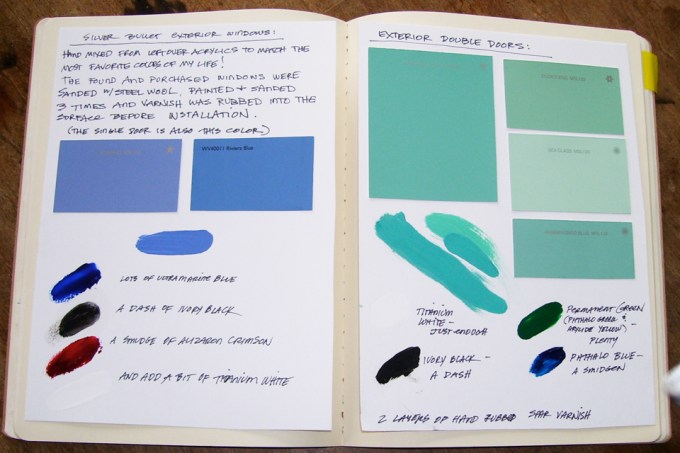 SILVER BULLET EXTERIOR WINDOWS:
HAND MIXED FROM LEFTOVER ACRYLICS TO MATCH THE
MOST FAVORITE COLORS OF MY LIFE!
THE FOUND AND PURCHASED WINDOWS WERE
SANDED W/STEEL WOOL, PAINTED & SANDED
3 TIMES AND VARNISH WAS RUBBED INTO THE
SURFACE BEFORE INSTALLATION.
(THE SINGLE DOOR IS ALSO THIS COLOR)
Riviera Blue
LOTS OF ULTRAMARINE BLUE
A DASH OF IVORY BLACK
A SMUDGE OF ALIZARON CRIMSON
AND ADD A BIT OF TITANIUM WHITE
EXTERIOR DOUBLE DOORS:
TITANIUM
WHITE —
JUST ENOUGH
IVORY BLACK —
A DASH
PERMANENT GREEN
(PHTHALO GREEN &
ARYLIDE YELLOW) —
PLENTY
PHTHALO BLUE —
A SMIDGEN
2 LAYERS OF HAND RUBBED SPAR VARNISH